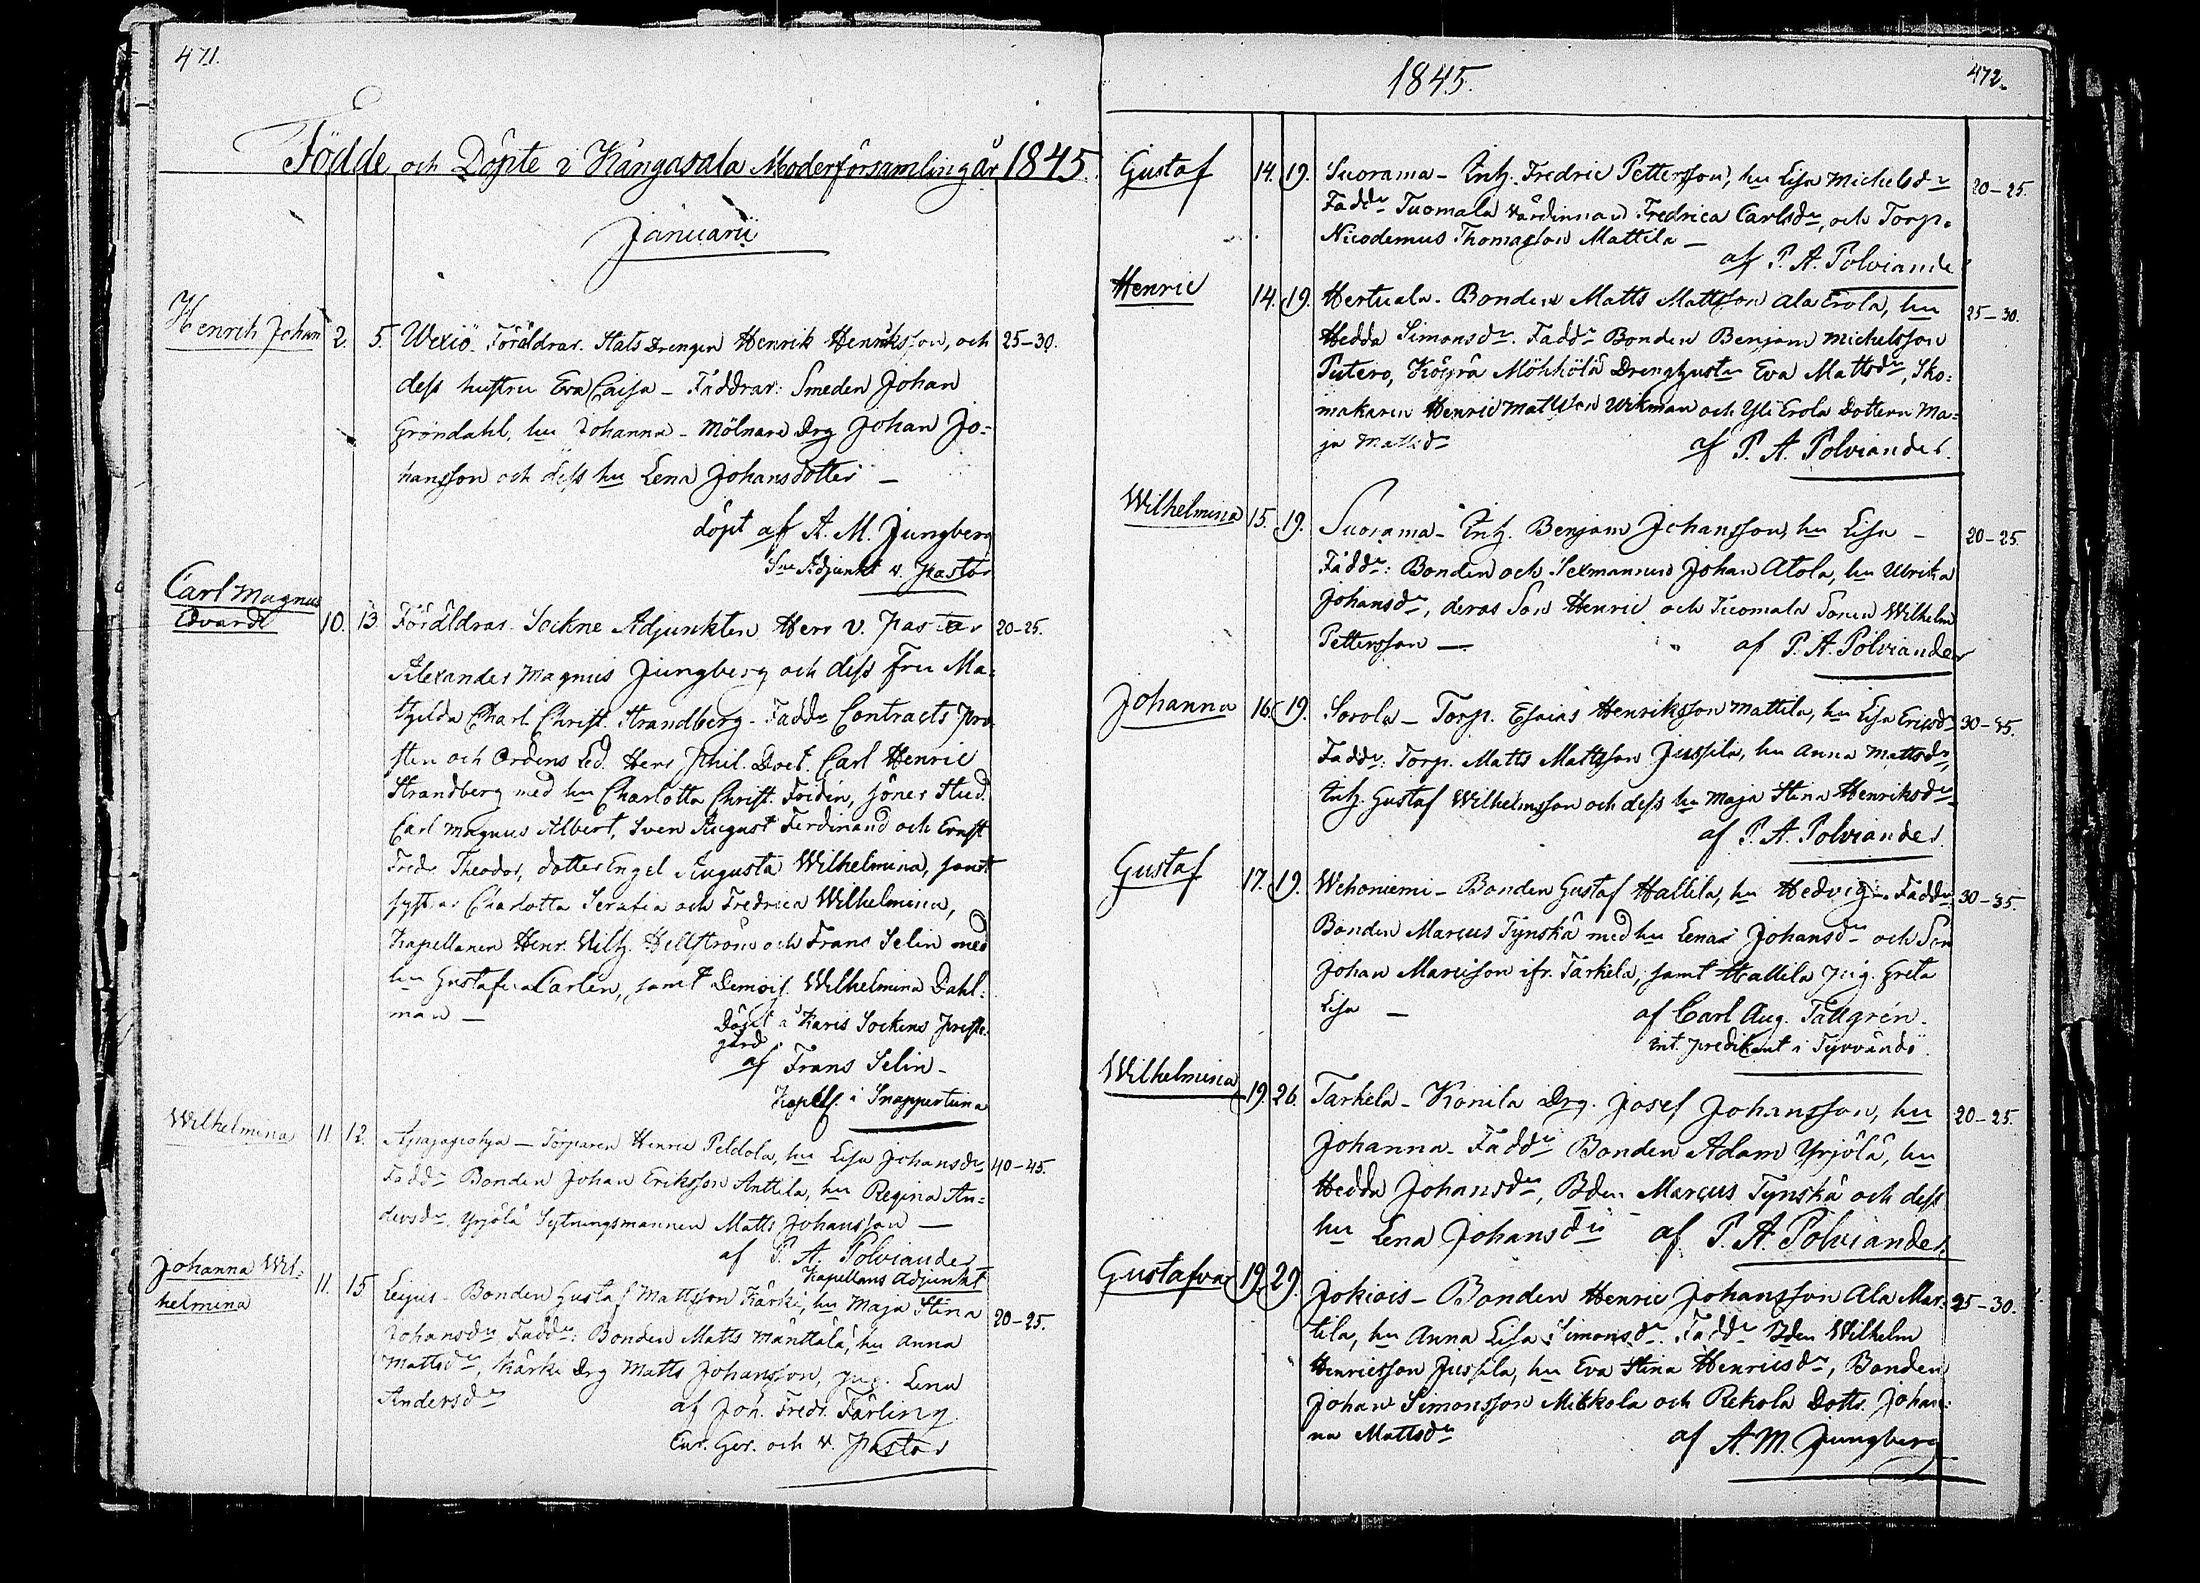 471.
Födde och Döpte i Kangasala Moderförsamling år 1845.
Januarii
Henrik Johan 2. 5. Wexiö. Föräldrar. Stats Drengen Henrik Henriksson, och 25-30.
dess hustru Eva Caisa - Faddrar: Smeden Johan
Gröndahl, hu Johanna - Mölnare Drg Johan Jo-
hansson och dess hu Lena Johansdotter -
döpt af A. M. Jungberg
Sne Adjunkt v. Pastor
Carl Magnus
Edvard 10. 13. Föräldrar. Sockne Adjunkten Herr v. Pastor 20-25.
Alexander Magnus Jungberg och dess Fru Ma-
thilda Charl. Christ. Strandberg - Faddr Contracts Pro-
sten och Ordens Led. Herr Phil. Doct. Carl Henric
Strandberg med hu Charlotta Christ. Fridén, söner Stud.
Carl Magnus Albert, Sven August Ferdinand och Ernst
Fredr Theodor, dotter Engel Augusta Wilhelmina, samt
systrar Charlotta Serafia och Fredrica Wilhelmina,
Kapellanen Henr. Wilh. Hellström och Frans Selin med
hu Gustafva Carlén, samt Demois. Wilhelmina Dahl-
man -
Döpt i Karis Sockens Preste-
gård
af Frans Selin -
Kapell. i Snappertuna
Wilhelmina 11 12. - Torparen Henric Peldola, hu Lisa Johansdr 40-45.
Faddr Bonden Johan Eriksson Anttila, hu Regina An-
dersdr, Yrjölä Sytningsmannen Matts Johansson -
af P. A. Polviander
Kapellans Adjunkt
Johanna Wil-
helmina 11. 15 Leijus - Bonden Gustaf Mattsson Kärki, hu Maja Stina 20-25.
Johansdr Faddr: Bonden Matts Mänttälä, hu Anna
Mattsdr, Kärki Drg Matts Johansson, pig. Lena
Andersdr
af Joh. Fredr. Färling
Cur. Ger. och v. Pastor
1845.
472.
Gustaf 14. 19. Suorama - Inh. Fredric Pettersson, hu Lisa Michelsdr 20-25.
Faddr Tuomala Värdinnan Fredrica Carlsdr, och Torp.
Nicodemus Thomasson Mattila -
af P. A. Polviande
Henric 14. 19. Hertuala. Bonden Matts Mattsson Ala Erola, hu 25-30.
Hedda Simonsdr. Faddr Bonden Benjam Michelsson
Putero, Köyrä Möhkölä Dreng hustr Eva Mattsdr, Sko-
makaren Henric Mattsson Wikman och Yli Erola Dottern Ma-
ja Mattsdr
af P. A. Polviander.
Wilhelmina 15. 19. Suorama - Inh. Benjam Johansson, hu Lisa - 20-25.
Faddr: Bonden och Sexmannen Johan Atola, hu Ulrika
Johansdr, deras Son Henric och Tuomala Sonen Wilhelm
Pettersson -
af P. A. Polviander
Johanna 16. 19. Sorola - Torp. Esaias Henriksson Mattila, hu Lisa Ericsdr 30-35.
Faddr: Torp. Matts Mattsson Jussila, hu Anna Mattsdr,
Inh. Gustaf Wilhelmsson och dess hu Maja Stina Henriksdr
af P. A. Polviander.
Gustaf 17. 19. Wehoniemi - Bonden Gustaf Hallila, hu Hedvig. Faddr 30-35.
Bonden Marcus Tynskä med hu Lena Johansdr och Son
Johan Marcisson ifr. Tarkela, samt Hallila pig. Greta
Lisa -
af Carl Aug. Tallgrén.
int. predikant i Tyrvändö.
Wilhelmina 19 26. Tarkela - Konila Drg. Josef Johansson, hu 20-25.
Johanna - Faddr Bonden Adam Yrjölä, hu
Hedda Johansdr, Bden Marcus Tynskä och dess
hu Lena Johansdr af P. A. Polviander.
Gustafva 19. 29. Jokiois - Bonden Henric Johansson Ala Mar- 25-30.
tila, hu Anna Lisa Simonsdr. Faddr Bden Wilhelm
Henricsson Jussila, hu Eva Stina Henricsdr, Bonden
Johan Simonsson Mikkola och Rekola Dottr. Johan-
na Mattsdr
af A. M. Jungberg